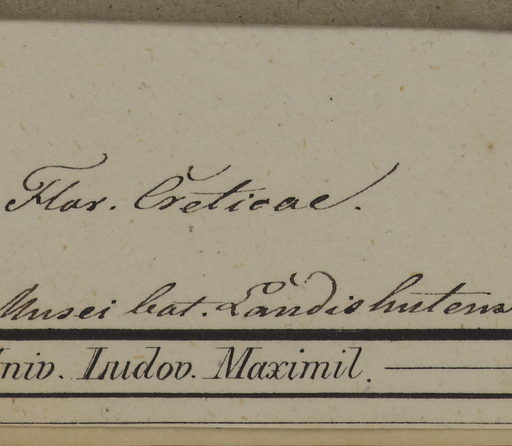 Flor. Creticae.
Musei bot. Landishutens
Univ. Ludov. Maximil.